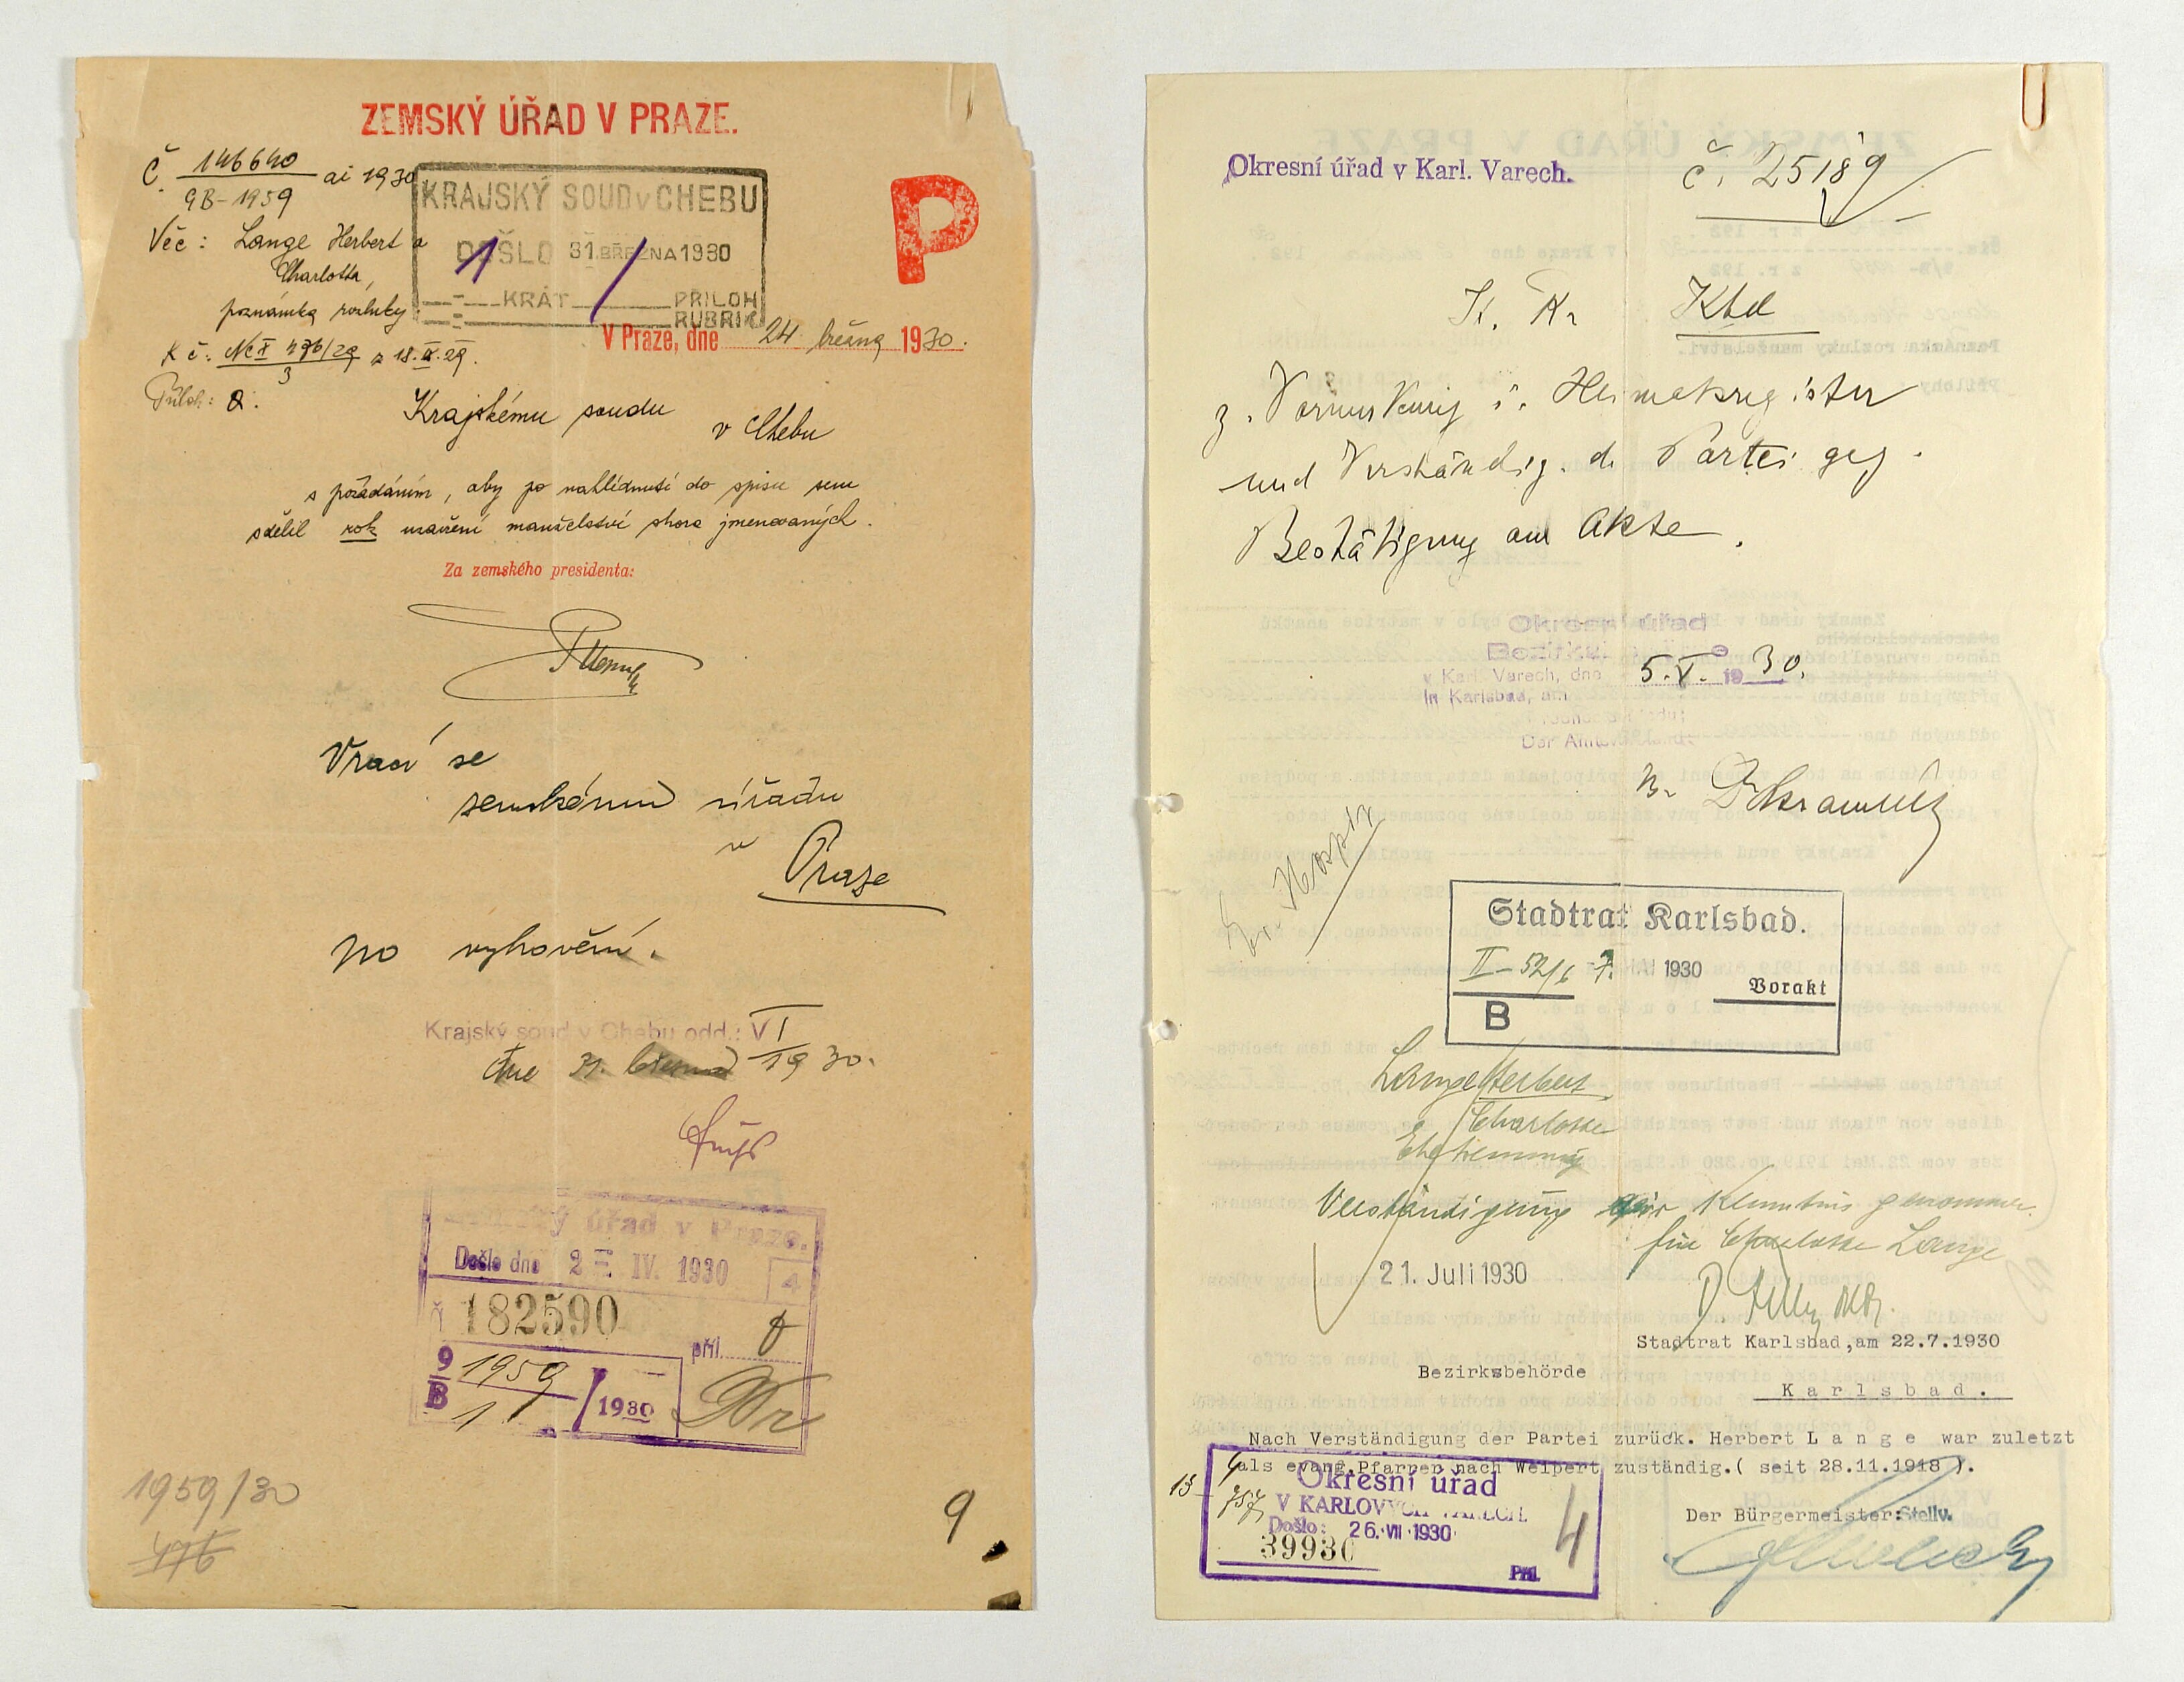 ZEMSKÝ ÚŘAD V PRAZE.
Č. 146640 ai 1930
9B-1959
KRAJSKÝ SOUD v CHEBU
DOŠLO 31. BŘEZNA 1930
1 KRÁT / PŘILOH
RUBRIK
P
Věc: Lange Herbert a
Charlotta,
poznámka rozluky
V Praze, dne 24. března 1930.
K č: Nc I 476/29 z 18. 29.
3
Příloh: 0.
Krajskému soudu
v Chebu
s požádáním, aby po nahlédnutí do spisu sem
sdělil rok uzavření manželství shora jmenovaných.
Za zemského presidenta:
Vrací se
zemskému úřadu
v
Praze
po vyhovění.
Krajský soud v Chebu odd.: VI
dne 31. března 1930.
úřad v Praze.
Došlo dne 2 - IV. 1930 4
Č 182590
příl.
9 1959
B 1 / 1930
1959/30
476
9
Okresní úřad v Karl. Varech.
č. 25189
z. Vormerkung i. Heimatsregister
und Verständig. d. Partei geg.
Bestätigung am Akte.
Okresní úřad
v Karl. Varech, dne 5.V. 1930.
In Karlsbad, am
Stadtrat Karlsbad.
II-52/6 7. 1930
Vorakt
B
Lange Herbert,
Charlotte
Ehetrennung
Verständigung zur Kenntnis genommen.
für Charlotte Lange
21. Juli 1930
Stadtrat Karlsbad,am 22.7.1930
Bezirksbehörde
Karlsbad.
Nach Verständigung der Partei zurück. Herbert Lange war zuletzt
als evang.Pfarrer nach Weipert zuständig.( seit 28.11.1918 ).
13
Okresní úřad
V KARLOVÝCH VARECH.
Došlo: 26. VII 1930
39930
Příl.
4
Der Bürgermeister:Stellv.